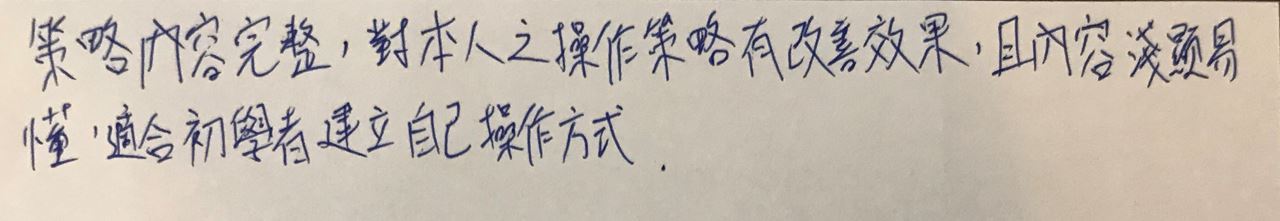 策略內容完整，對本人之操作策略有改善效果，且內容淺顯易
懂，適合初學者建立自己操作方式.